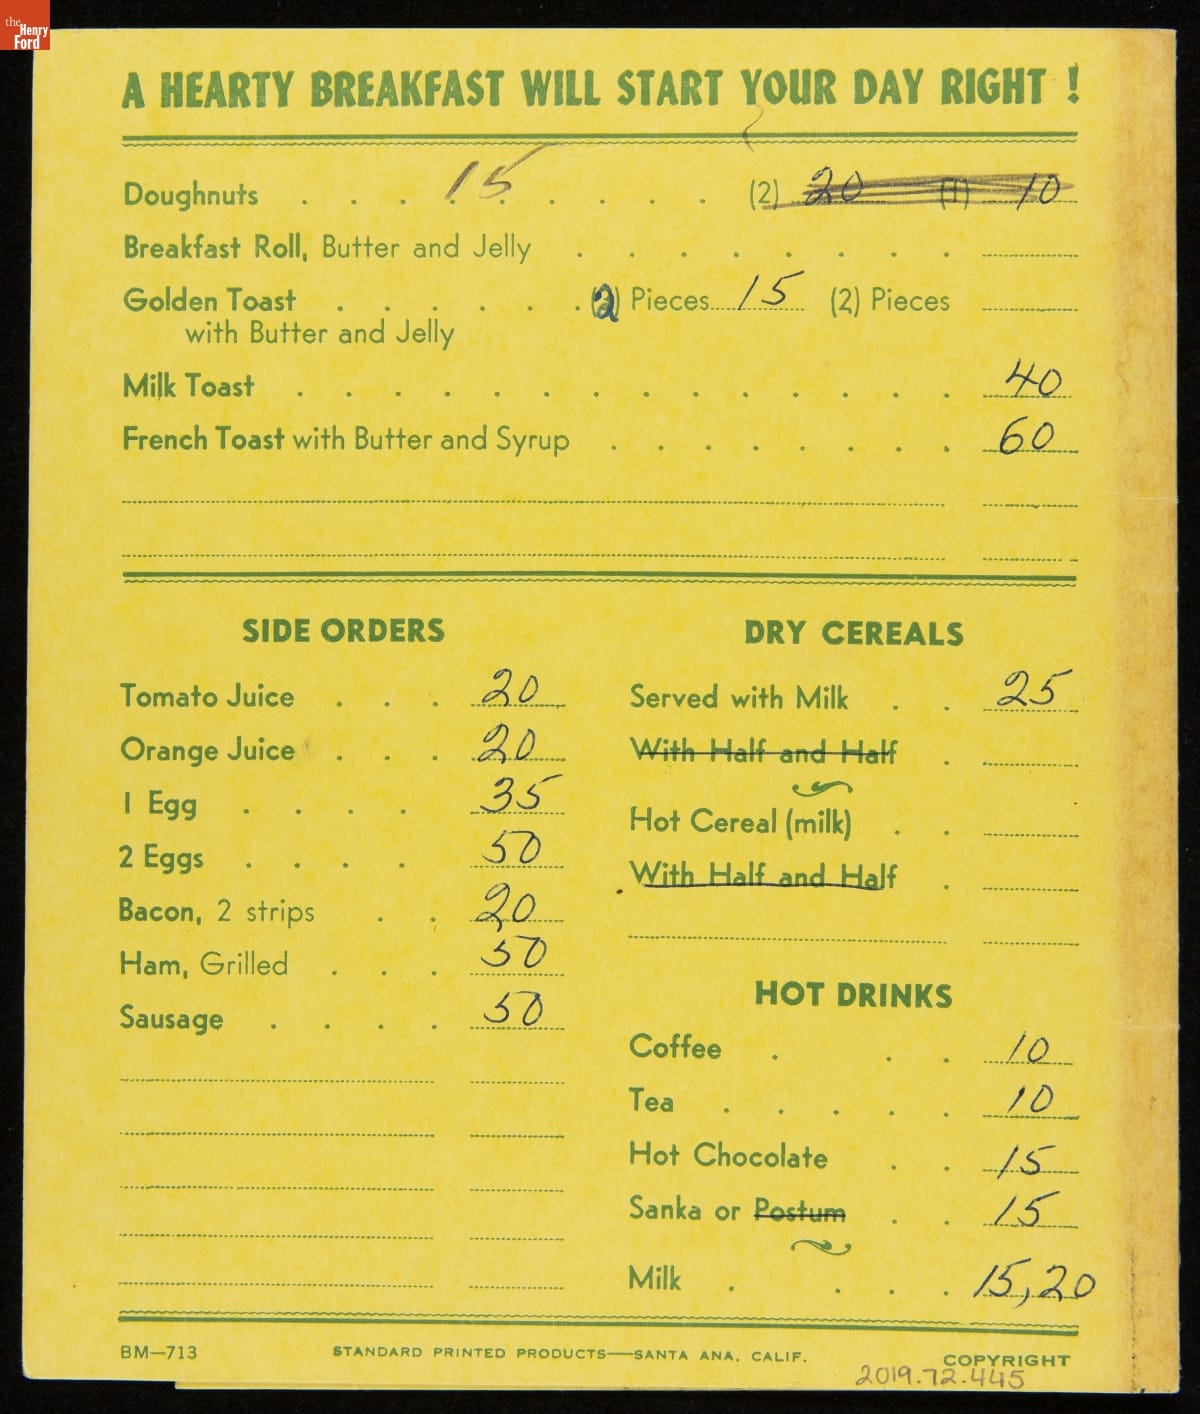 the
Henry
Ford
A HEARTY BREAKFAST WILL START YOUR DAY RIGHT !
Doughnuts . . . 15 . . . . . (2) 20 (1) 10
Breakfast Roll, Butter and Jelly . . . . . . . .
Golden Toast . . . . . . (2) Pieces 15 (2) Pieces
with Butter and Jelly
Milk Toast . . . . . . . . . . . . . . 40
French Toast with Butter and Syrup . . . . . . . . 60
SIDE ORDERS
Tomato Juice . . . 20
Orange Juice . . . 20
1 Egg . . . . 35
2 Eggs . . . . 50
Bacon, 2 strips . . 20
Ham, Grilled . . . 50
Sausage . . . . 50
DRY CEREALS
Served with Milk . . 25
With Half and Half .
Hot Cereal (milk) . .
With Half and Half .
HOT DRINKS
Coffee . . . 10
Tea . . . . . 10
Hot Chocolate . . 15
Sanka or Postum . . 15
Milk . . . . 15, 20
BM—713 STANDARD PRINTED PRODUCTS—SANTA ANA, CALIF. COPYRIGHT
2019.72.445